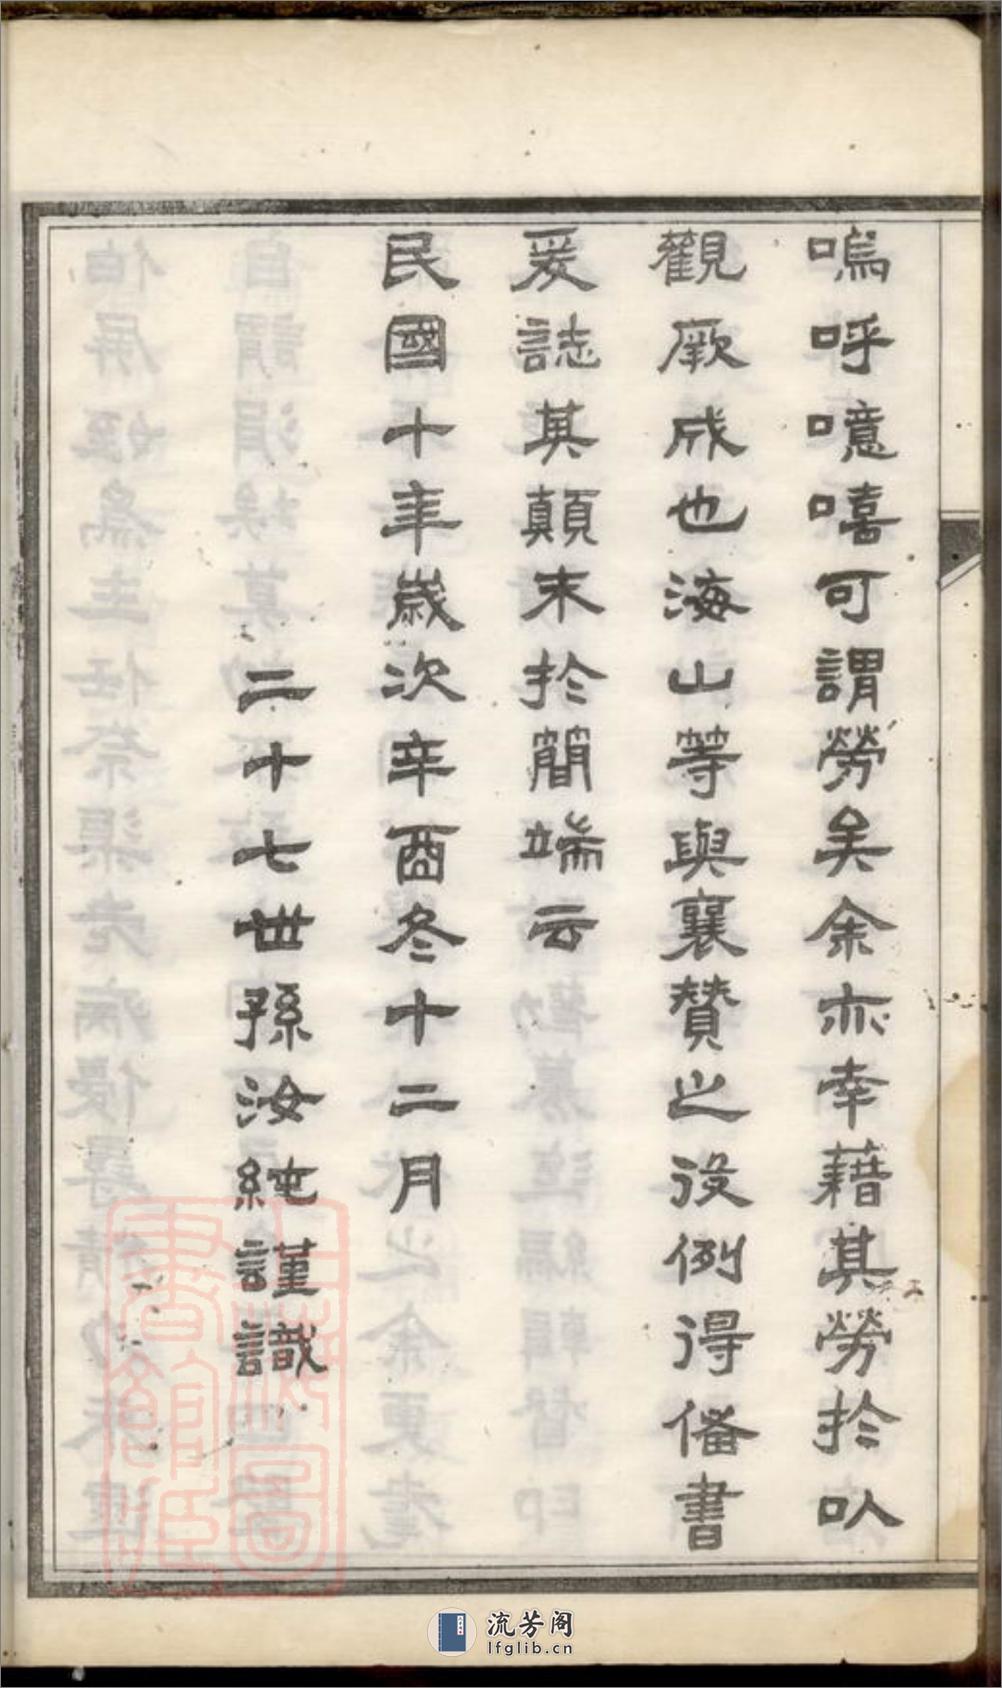 嗚呼噫嘻可謂勞矣余亦幸藉其勞於以
觀厥成也海山等與襄贊之役例得備書
爰誌其顛末於簡端云
民國十年歲次辛酉冬十二月
二十七世孫汝純謹識
上海圖書館藏
流芳阁
lfglib.cn